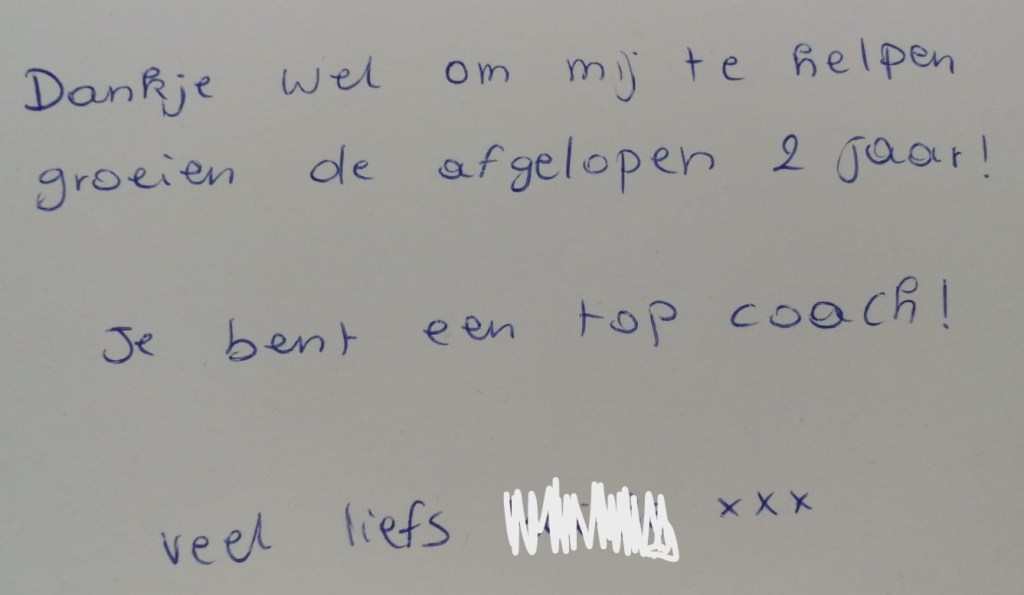 Dankje wel om mij te helpen
groeien de afgelopen 2 jaar!
Je bent een top coach!
veel liefs xxx